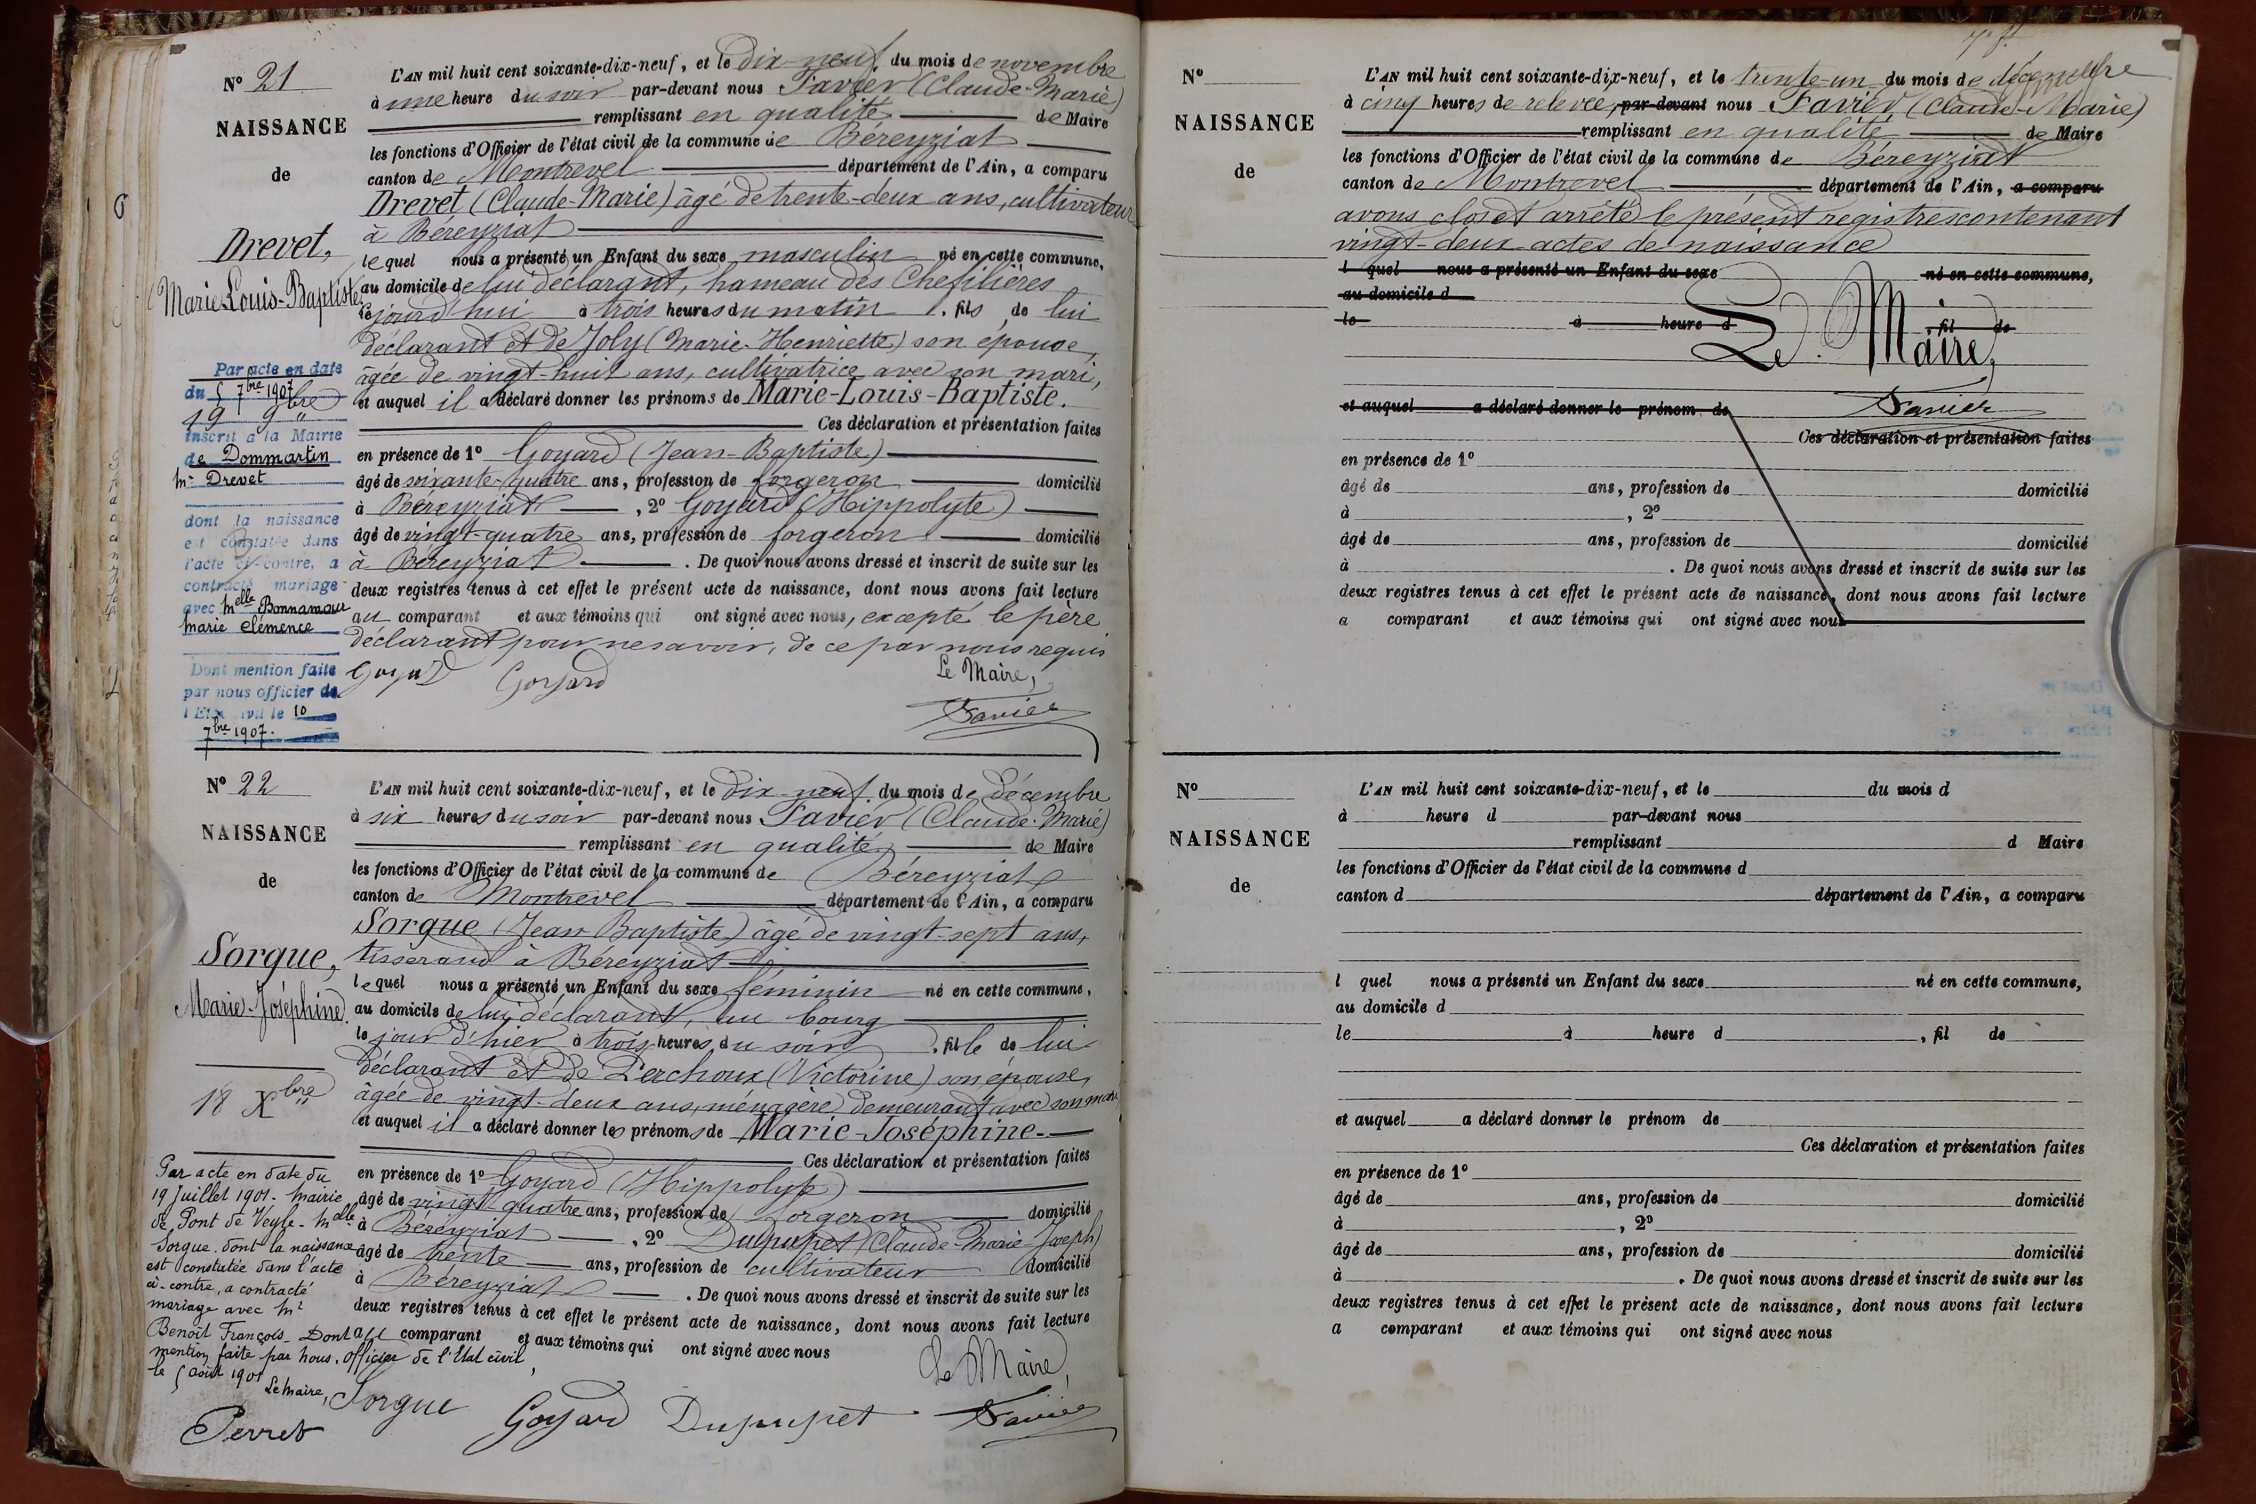 N° 21
NAISSANCE
de
Drevet,
Marie Louis-Baptiste
19 9bre
Par acte en date
du 5 7bre 1907
inscrit à la Mairie
de Dommartin
Mr Drevet
dont la naissance
est constatée dans
l'acte ci-contre, a
contracté mariage
avec Melle Bonnamour
Marie Clémence
Dont mention faite
par nous officier de
l'Etat civil le 10
7bre 1907.
L'AN mil huit cent soixante-dix-neuf, et le dix-neuf du mois de novembre
à une heure du soir par-devant nous Favier (Claude-Marie)
remplissant en qualité de Maire
les fonctions d'Officier de l'état civil de la commune de Béreyziat
canton de Montrevel département de l'Ain, a comparu
Drevet (Claude-Marie) âgé de trente-deux ans, cultivateur
à Béreyziat
lequel nous a présenté un Enfant du sexe masculin né en cette commune,
au domicile de lui déclarant, hameau des Chefilières
cejourd'hui à trois heures du matin, fils de lui
déclarant et de Joly (Marie-Henriette) son épouse,
âgée de vingt-huit ans, cultivatrice avec son mari,
et auquel il a déclaré donner les prénoms de Marie-Louis-Baptiste.
Ces déclaration et présentation faites
en présence de 1° Goyard (Jean-Baptiste)
âgé de soixante-quatre ans, profession de forgeron domicilié
à Béreyziat, 2° Goyard (Hippolyte)
âgé de vingt-quatre ans, profession de forgeron domicilié
à Béreyziat. De quoi nous avons dressé et inscrit de suite sur les
deux registres tenus à cet effet le présent acte de naissance, dont nous avons fait lecture
au comparant et aux témoins qui ont signé avec nous, excepté le père
déclarant pour ne savoir, de ce par nous requis
Goyard Goyard Le Maire,
Favier
N° 22
NAISSANCE
de
Sorgue,
Marie-Joséphine.
18 Xbre
Par acte en date du
19 Juillet 1901. Mairie
de Pont de Veyle. Melle
Sorgue. dont la naissance
est constatée dans l'acte
ci-contre, a contracté
mariage avec Mr
Benoit François. Dont
mention faite par nous. Officier de l'Etat civil
le 5 Août 1901
Le Maire,
Perret
L'AN mil huit cent soixante-dix-neuf, et le dix-neuf du mois de décembre
à six heures du soir par-devant nous Favier (Claude-Marie)
remplissant en qualité de Maire
les fonctions d'Officier de l'état civil de la commune de Béreyziat
canton de Montrevel département de l'Ain, a comparu
Sorgue (Jean Baptiste) âgé de vingt-sept ans,
tisserand à Béreyziat
lequel nous a présenté un Enfant du sexe féminin né en cette commune,
au domicile de lui déclarant, au bourg
le jour d'hier à trois heures du soir, fille de lui
déclarant et de Perchoux (Victorine) son épouse,
âgée de vingt-deux ans, ménagère demeurant avec son mari
et auquel il a déclaré donner les prénoms de Marie-Joséphine.
Ces déclaration et présentation faites
en présence de 1° Goyard (Hippolyte)
âgé de vingt-quatre ans, profession de forgeron domicilié
à Béreyziat, 2° Dupupet (Claude-Marie-Joseph)
âgé de trente ans, profession de cultivateur domicilié
à Béreyziat. De quoi nous avons dressé et inscrit de suite sur les
deux registres tenus à cet effet le présent acte de naissance, dont nous avons fait lecture
au comparant et aux témoins qui ont signé avec nous
Le Maire,
Sorgue Goyard Dupupet Favier
N°
NAISSANCE
de
L'AN mil huit cent soixante-dix-neuf, et le trente-un du mois de décembre
à cinq heures de relevée, par-devant nous Favier (Claude-Marie)
remplissant en qualité de Maire
les fonctions d'Officier de l'état civil de la commune de Béreyziat
canton de Montrevel département de l'Ain, a comparu
avons clos et arrêté le présent registre contenant
vingt-deux actes de naissance
l quel nous a présenté un Enfant du sexe né en cette commune,
au domicile d
le à heure d , fil de
Le Maire,
et auquel a déclaré donner le prénom de Favier
Ces déclaration et présentation faites
en présence de 1°
âgé de ans, profession de domicilié
à , 2°
âgé de ans, profession de domicilié
à . De quoi nous avons dressé et inscrit de suite sur les
deux registres tenus à cet effet le présent acte de naissance, dont nous avons fait lecture
a comparant et aux témoins qui ont signé avec nous
N°
NAISSANCE
de
L'AN mil huit cent soixante-dix-neuf, et le du mois d
à heure d par-devant nous
remplissant d Maire
les fonctions d'Officier de l'état civil de la commune d
canton d département de l'Ain, a comparu
l quel nous a présenté un Enfant du sexe né en cette commune,
au domicile d
le à heure d , fil de
et auquel a déclaré donner le prénom de
Ces déclaration et présentation faites
en présence de 1°
âgé de ans, profession de domicilié
à , 2°
âgé de ans, profession de domicilié
à . De quoi nous avons dressé et inscrit de suite sur les
deux registres tenus à cet effet le présent acte de naissance, dont nous avons fait lecture
a comparant et aux témoins qui ont signé avec nous